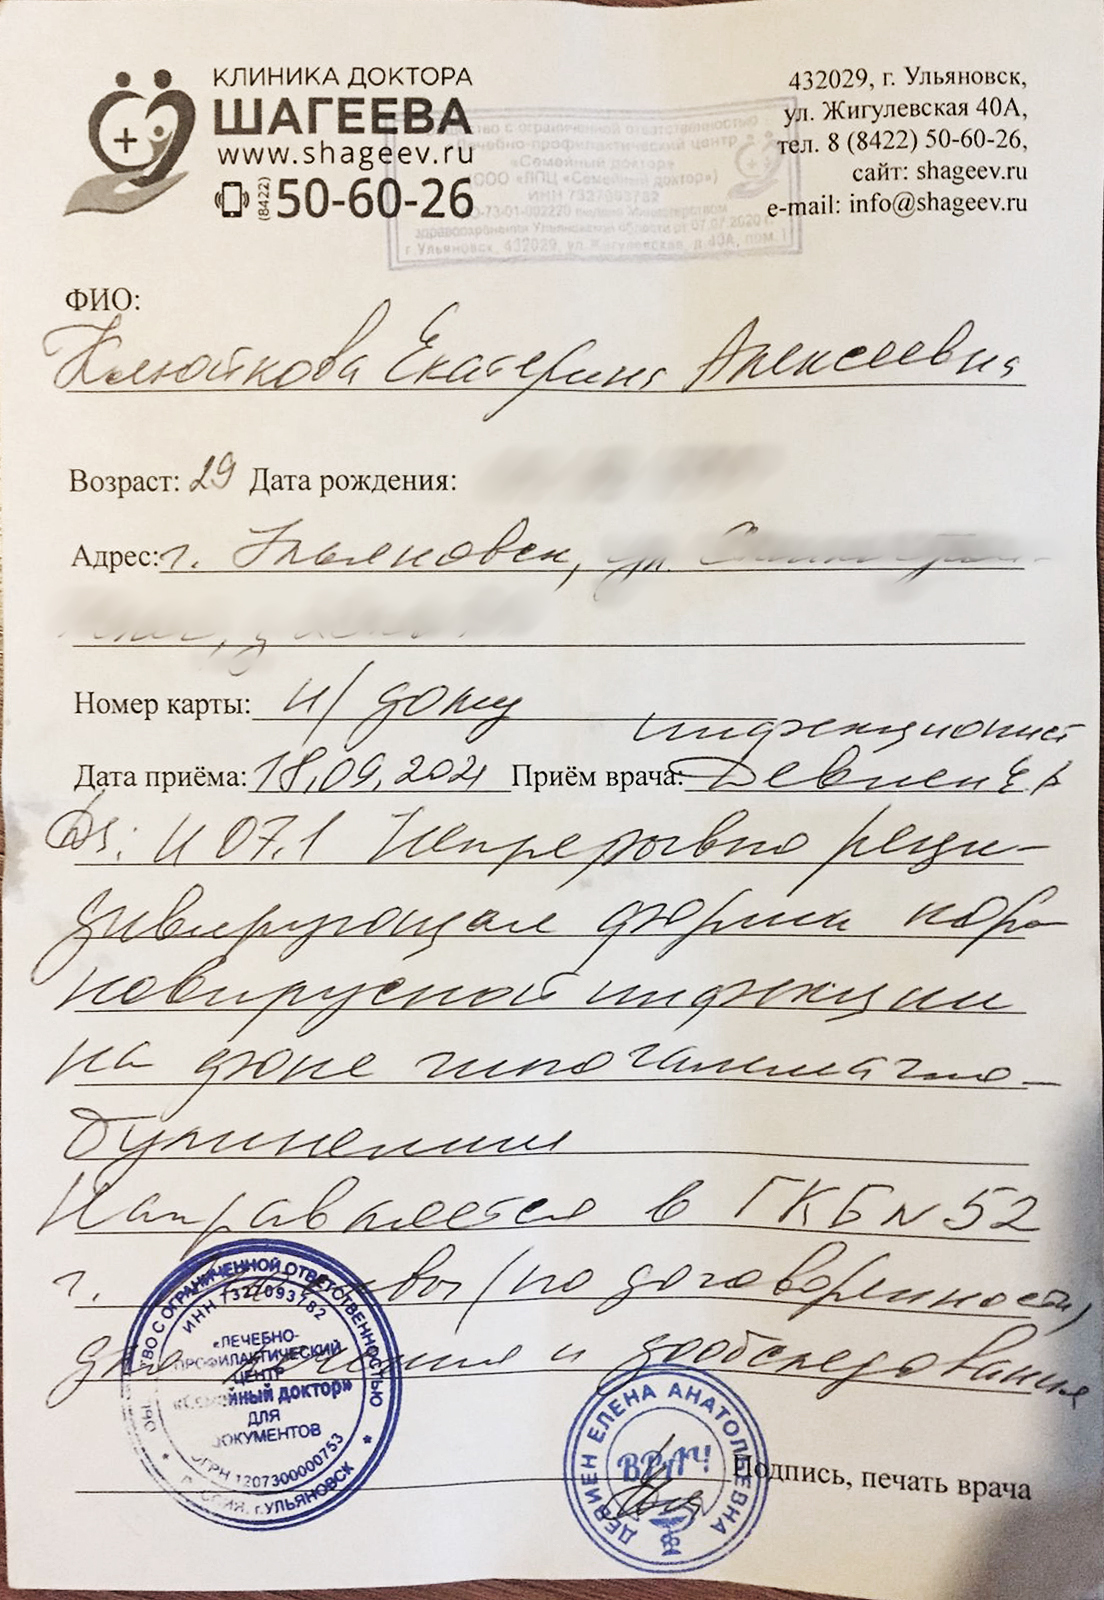 КЛИНИКА ДОКТОРА
ШАГЕЕВА
www.shageev.ru
(8422) 50-60-26
432029, г. Ульяновск,
ул. Жигулевская 40А,
тел. 8 (8422) 50-60-26,
сайт: shageev.ru
e-mail: info@shageev.ru
Общество с ограниченной ответственностью
«Лечебно-профилактический центр
«Семейный доктор»
(ООО «ЛПЦ «Семейный доктор»)
ИНН 7327093782
ЛО-73-01-002220 выдано Министерством
здравоохранения Ульяновской области от 07.07.2020 г.
г.Ульяновск, 432029, ул.Жигулевская, д.40А, пом.1
ФИО:
Клюйкова Екатерина Алексеевна
Возраст: 29 Дата рождения:
Адрес: г. Ульяновск, ул.
Номер карты: н/дому
инфекционист
Дата приёма: 18.09.2021 Приём врача: Девиен Е.А
Ds: U 07.1 Непрерывно реци-
дивирующая форма коро
новирусной инфекции
на фоне гипогаммагло-
булинемии
Направляется в ГКБ N 52
г. Москвы (по договоренности)
для лечения и дообследования
ОБЩЕСТВО С ОГРАНИЧЕННОЙ ОТВЕТСТВЕННОСТЬЮ
ИНН 7327093782
«ЛЕЧЕБНО-
ПРОФИЛАКТИЧЕСКИЙ
ЦЕНТР
«Семейный доктор»
ДЛЯ
ДОКУМЕНТОВ
ОГРН 1207300000753
РОССИЯ, г.УЛЬЯНОВСК
ДЕВИЕН ЕЛЕНА АНАТОЛЬЕВНА
ВРАЧ
Подпись, печать врача